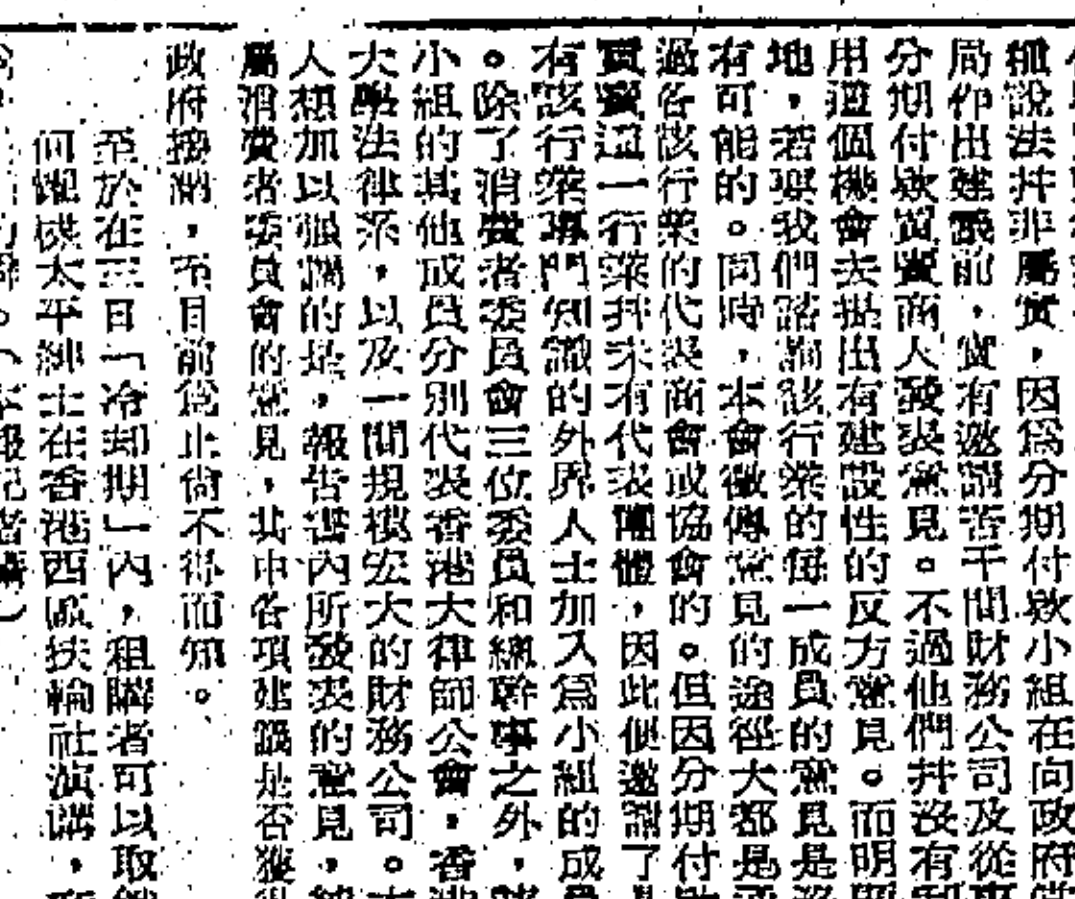 種說法并非屬實，因爲分期付欵小組在向政府
局作出建議前，實有邀請若干間財務公司及從事
分期付欵買賣商人發表意見。不過他們并沒有
用這個機會去提出有建設性的反方意見。而明
地，若要我們諮詢該行業的每一成員的意見是
有可能的。同時，本會徵傳意見的途徑大都是
過各該行業的代表商會或協會的。但因分期付
買賣這一行業并未有代表團體，因此便邀請了
有該行業專門知識的外界人士加入爲小組的成
。除了消費者委員會三位委員和總幹事之外，
小組的其他成員分別代表香港大律師公會，香港
大學法律系，以及一間規模宏大的財務公司。
人想加以强調的是，報告書內所發表的意見，
屬消費者委員會的意見，其中各項建議是否獲得
政府接納，至目前爲止尙不得而知。
至於在三日「冷却期」內，租購者可以取
何 太平紳士在香港西區扶輪社演講，